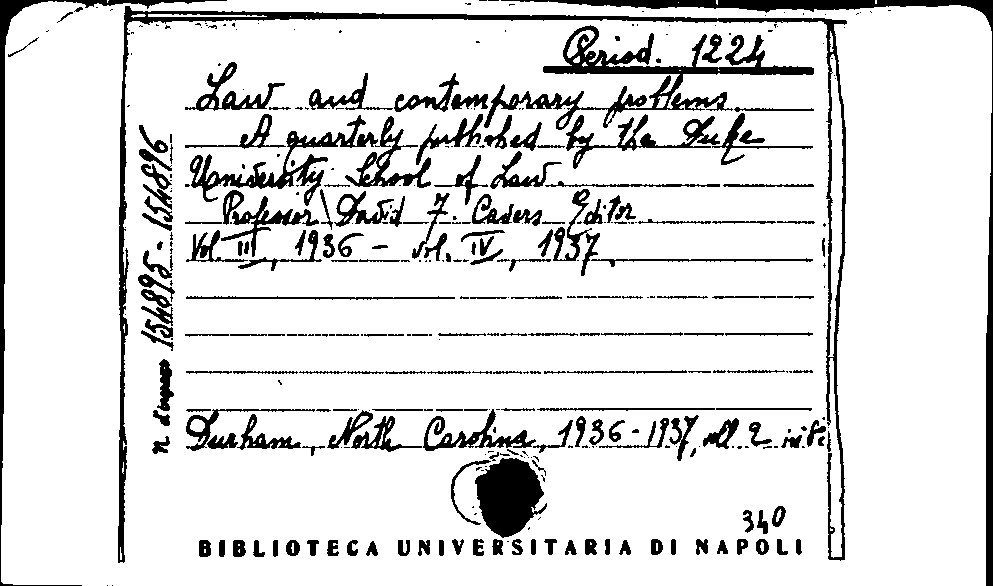 Period. 1224
Law and contemporary problems.
A quarterly published by the Duke
University School of Law.
Professor David F. Cavers Editor.
Vol. III, 1936 - vol. IV, 1937.
n. d'ingresso 154895 - 154896
Durham, North Carolina, 1936-1937, voll 2 in 8°
340
BIBLIOTECA UNIVERSITARIA DI NAPOLI